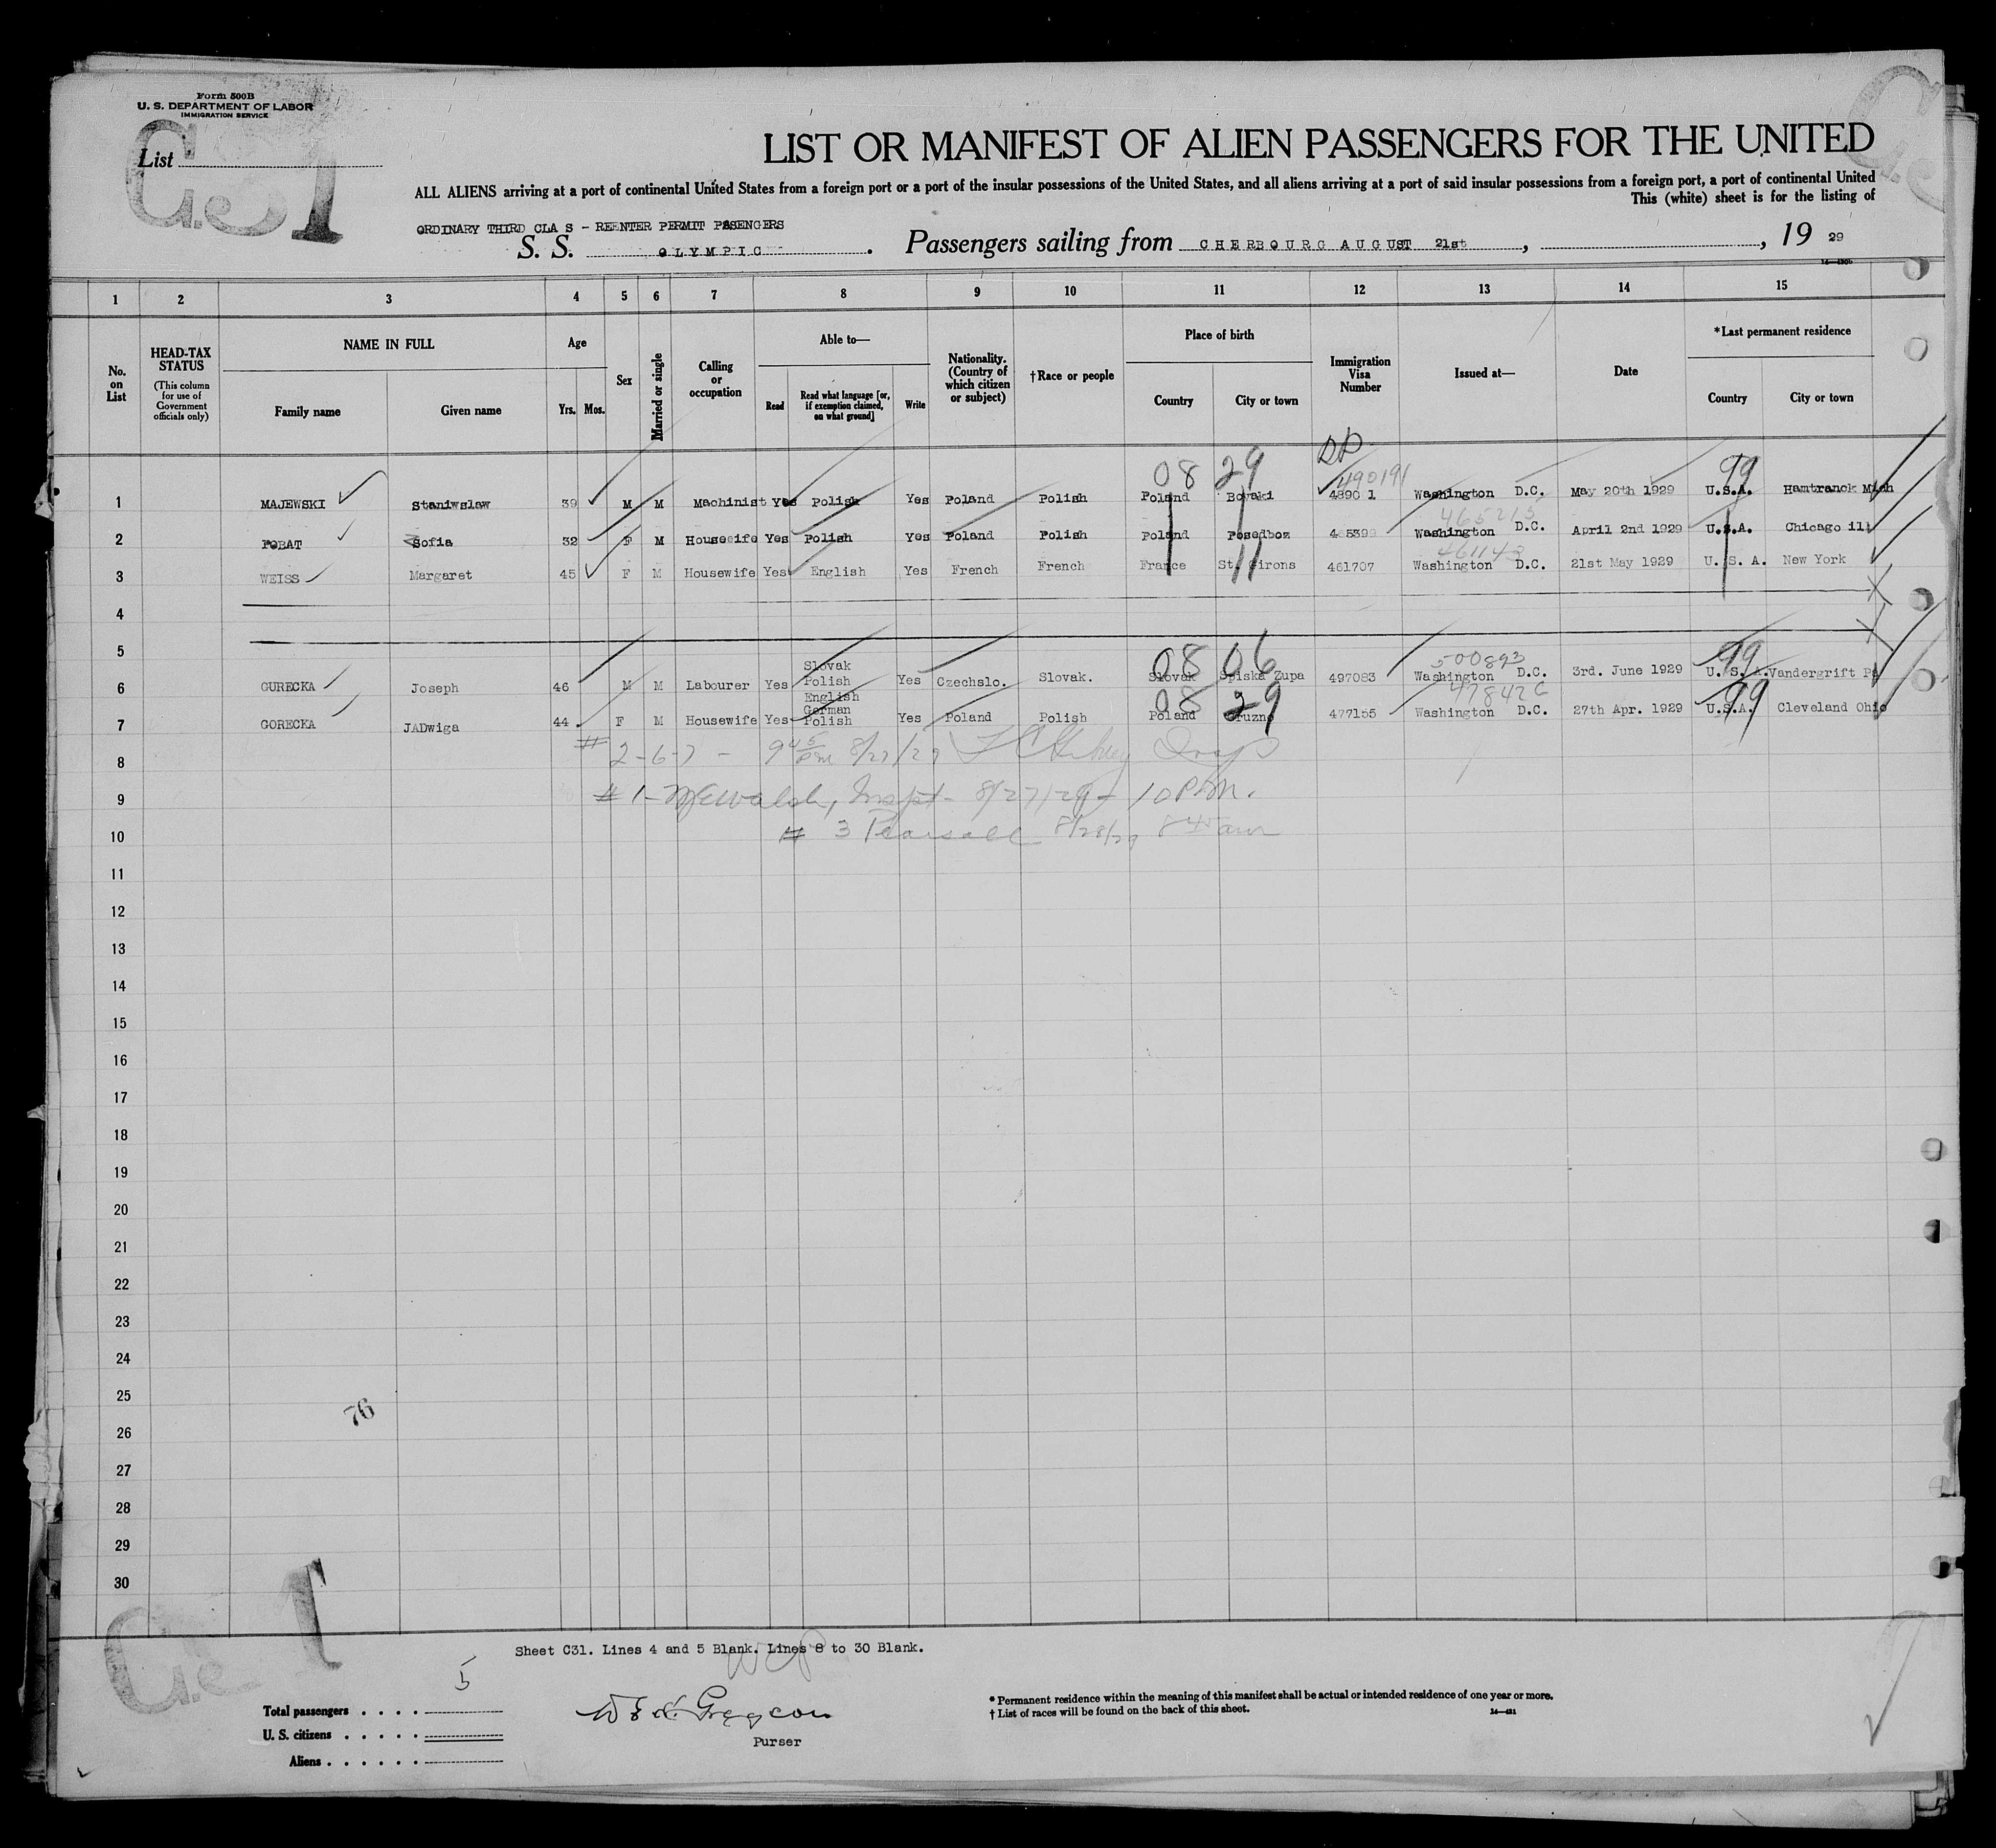 Form 500B
U. S. DEPARTMENT OF LABOR
IMMIGRATION SERVICE
List
LIST OR MANIFEST OF ALIEN PASSENGERS FOR THE UNITED
ALL ALIENS arriving at a port of continental United States from a foreign port or a port of the insular possessions of the United States, and all aliens arriving at a port of said insular possessions from a foreign port, a port of continental United
This (white) sheet is for the listing of
ORDINARY THIRD CLA S - REENTER PERMIT PASENGERS
S. S. OLYMPIC. Passengers sailing from CHERBOURG AUGUST 21st, , 19 29
1 2 3 4 5 6 7 8 9 10 11 12 13 14 15
No. on List
HEAD-TAX STATUS (This column for use of Government officials only)
NAME IN FULL
Family name Given name
Age
Yrs. Mos.
Sex
Married or single
Calling or occupation
Able to—
Read Read what language [or, if exemption claimed, on what ground] Write
Nationality. (Country of which citizen or subject)
†Race or people
Place of birth
Country City or town
Immigration Visa Number
Issued at—
Date
*Last permanent residence
Country City or town
08 29 490191 99
1 MAJEWSKI Staniwslaw 39 M M Machinist Yes Polish Yes Poland Polish Poland Boyaki 4890 1 Washington D.C. May 20th 1929 U.S.A. Hamtranck Mich
465215
2 Sofia 32 F M Housewife Yes Polish Yes Poland Polish Poland Posedboz Washington D.C. April 2nd 1929 U.S.A. Chicago ill
461143
3 WEISS Margaret 45 F M Housewife Yes English Yes French French France St. Girons 461707 Washington D.C. 21st May 1929 U. S. A. New York
11
4
5
08 06 500893 99
6 GURECKA Joseph 46 M M Labourer Yes Slovak Polish English Yes Czechslo. Slovak. Slovak Spiska Zupa 497083 Washington D.C. 3rd. June 1929 U. S. A. Vandergrift Pa
08 29 478426 99
7 GORECKA JADwiga 44 F M Housewife Yes German Polish Yes Poland Polish Poland Gruzno 477155 Washington D.C. 27th Apr. 1929 U.S.A. Cleveland Ohio
8 # 2-6-7 - 9 45 pm 8/27/29
9 # 1- Walsh, Inspt- 8/27/29- 10 P.M.
10 # 3 Pearsall 8/28/29 8 45 am
11
12
13
14
15
16
17
18
19
20
21
22
23
24
25
76
26
27
28
29
30
Sheet C31. Lines 4 and 5 Blank. Lines 8 to 30 Blank.
5
Total passengers
U. S. citizens
Aliens
Purser
* Permanent residence within the meaning of this manifest shall be actual or intended residence of one year or more.
† List of races will be found on the back of this sheet.